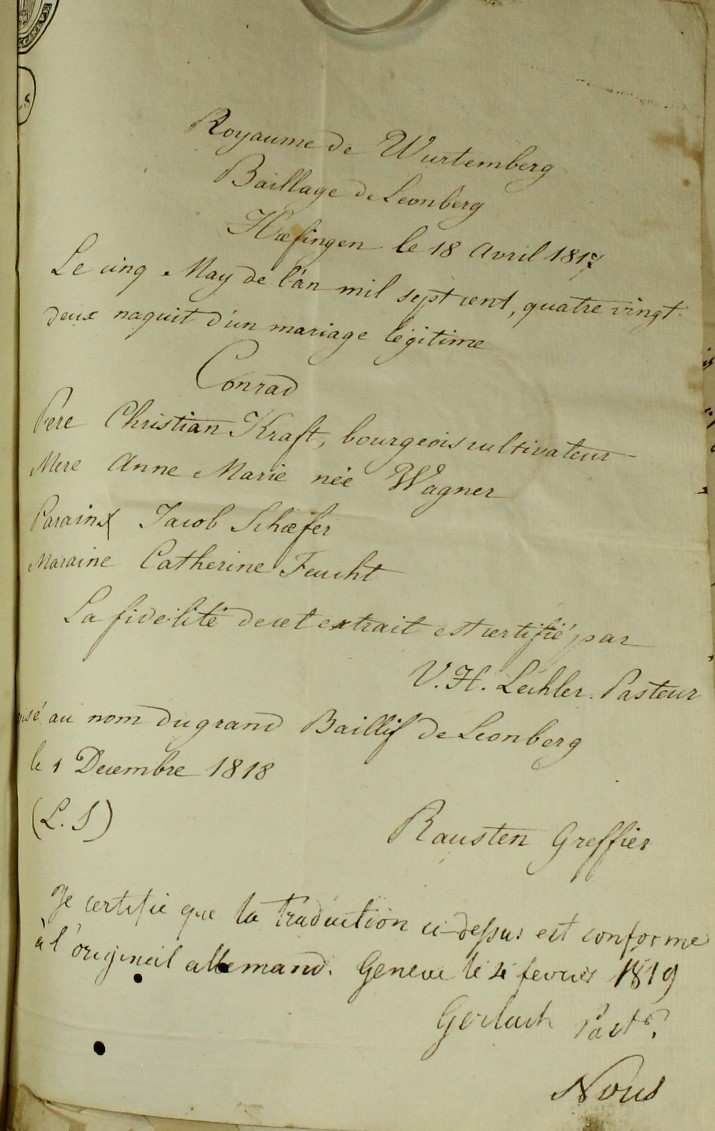 Royaume de Wurtemberg
Baillage de Leonberg
Hœfingen le 18 Avril 1817
Le cinq May de l'an mil sept cent, quatre vingt
deux naquit d'un mariage légitime
Conrad
Pere Christian Kraft, bourgeois cultivateur
Mere Anne Marie née Wagner
Parain Jacob Schæfer
Maraine Catherine Feucht
La fidélité de cet extrait est certifié par
V. H. Lechler. Pasteur
au nom du grand Baillif de Leonberg
le 1 Decembre 1818
(L. S)
Rausten Greffier
Je certifie que la traduction ci-dessus est conforme
à l'origineil allemand. Geneve le 4 fevrier 1819
Gerlach Past.
Nous